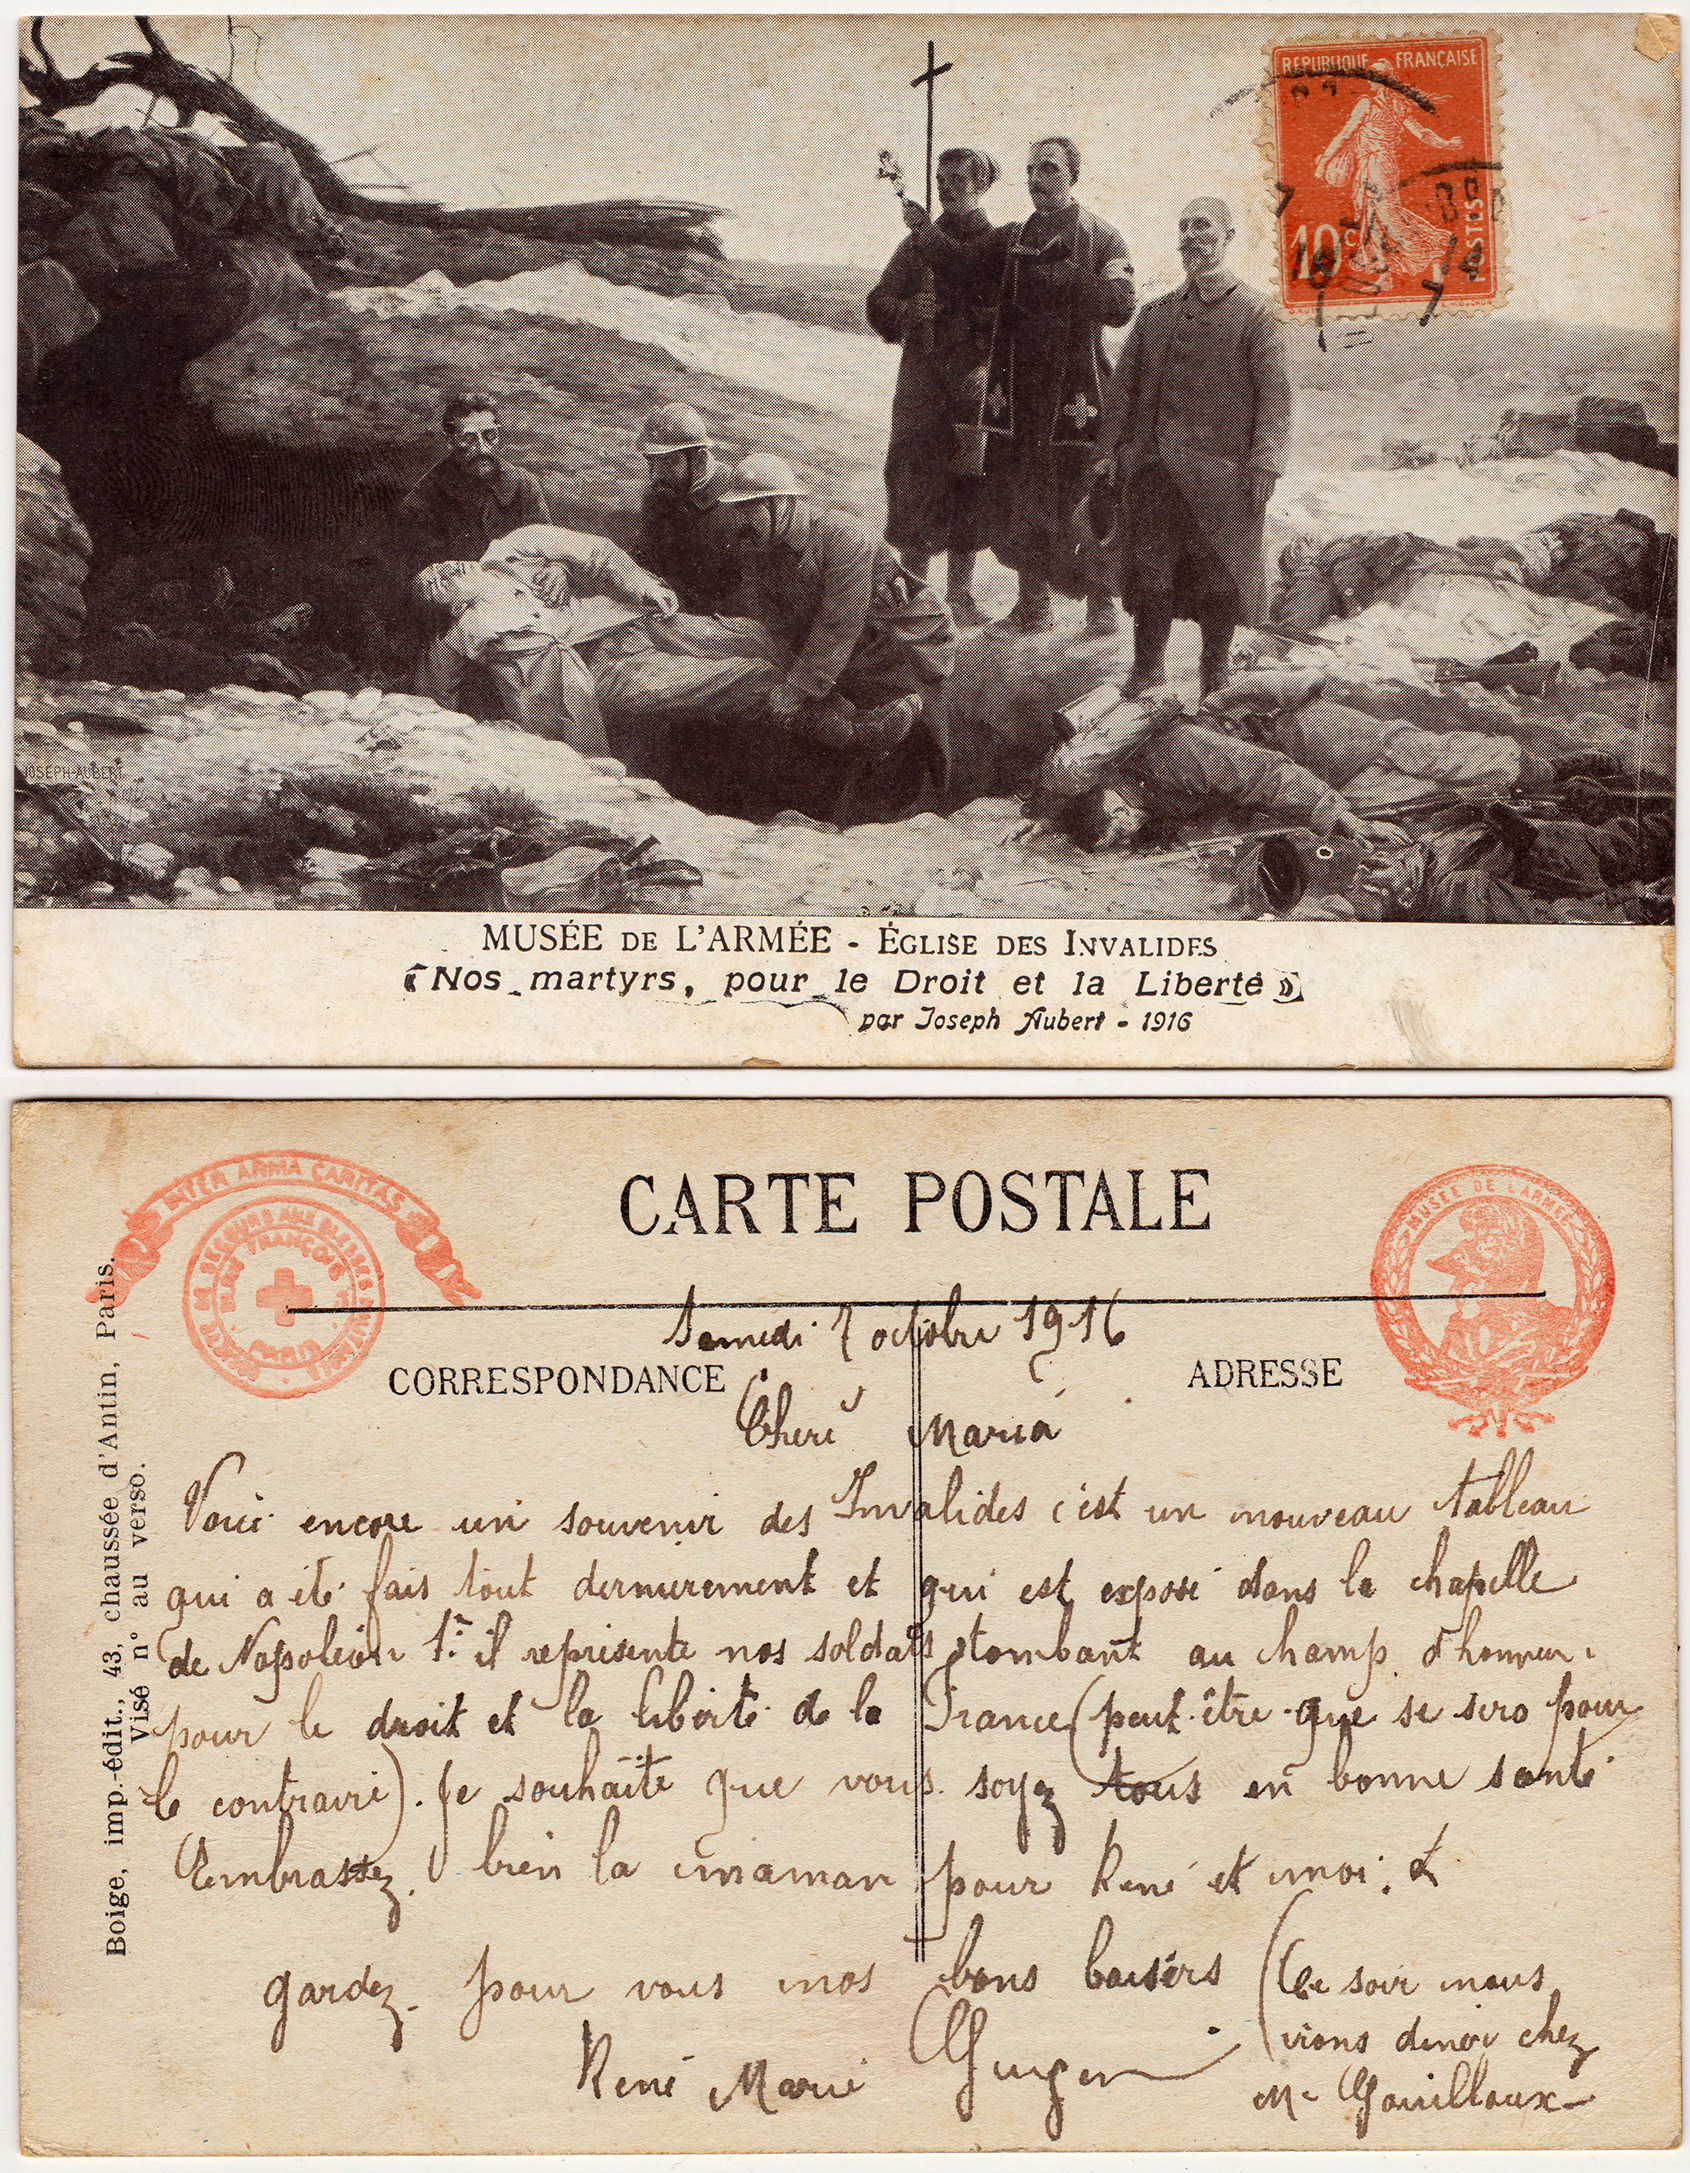 REPUBLIQUE FRANÇAISE
10c
POSTES
JOSEPH-AUBERT
MUSÉE DE L'ARMÉE - ÉGLISE DES INVALIDES
«Nos martyrs, pour le Droit et la Liberté»
par Joseph Aubert - 1916
INTER ARMA CARITAS
SECOURS AUX BLESSÉS
PARIS
CARTE POSTALE
MUSÉE DE L'ARMÉE
Boige, imp.-édit., 43, chaussée d'Antin, Paris.
Visé n° au verso.
Samedi 7 octobre 1916
CORRESPONDANCE
ADRESSE
Cheré Maria
Voici encore un souvenir des Invalides c'est un nouveau tableau
qui a été fais tout dernierement et qui est exposé dans la chapelle
de Napoléon 1er il represente nos soldats tombant au champ d'honneur
pour le droit et la liberté de la France (peut-être que se sera pour
le contraire). Je souhaite que vous soyez tous en bonne santé
Embrassez bien la maman pour René et moi. &
gardez pour vous nos bons baisers
(Ce soir nous
irons diner chez
Mr Gouilloux
René Marie